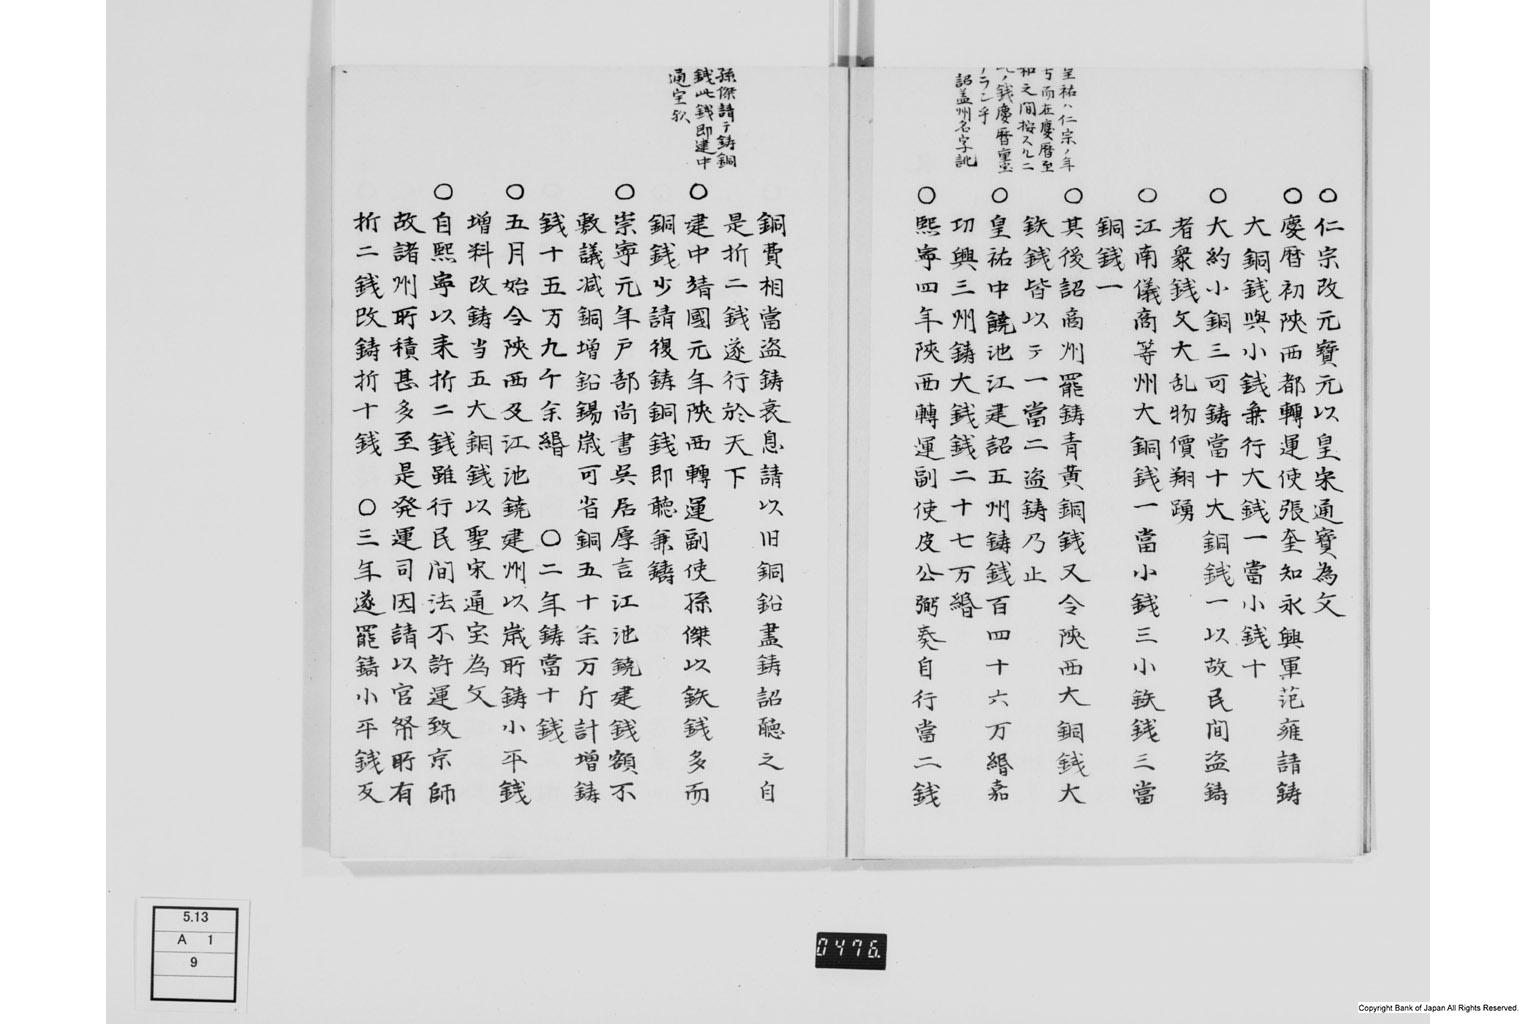 ○仁宗改元寶元以皇宋通寶為文
○慶暦初陜西都轉運使張奎知永興軍范雍請鋳
大銅銭與小銭兼行大銭一當小銭十
○大約小銅三可鋳當十大銅銭一以故民间盗鋳
者衆銭文大乱物價翔踴
○江南儀商等州大銅銭一當小銭三小鉄銭三當
銅銭一
○其後詔商州罷鋳青黄銅銭又令陜西大銅銭大
鉄銭皆以テ一當二盗鋳乃止
○皇祐中饒池江建詔五州鋳銭百四十六万緡嘉
功興三州鋳大銭銭二十七万緡
○熙寧四年陜西轉運副使皮公弼奏自行當二銭
皇祐ハ仁宗ノ年
号而在慶暦至
和之间按スルニ
此ノ銭慶暦重宝
ナランヤ
詔盖州名字訛
銅費相當盗鋳衰息請以旧銅鉛盡鋳詔聴之自
是折二銭遂行於天下
○建中靖國元年陜西轉運副使孫傑以鉄銭多而
銅銭少請復鋳銅銭即聴兼鑄
○崇寧元年戸部尚書呉居厚言江池饒建銭額不
敷議减銅增鉛錫歳可省銅五十余万斤計增鋳
銭十五万九千余緡　○二年鋳當十銭
○五月始令陜西及江池饒建州以歳所鋳小平銭
增料改鋳当五大銅銭以聖宋通宝為文
○自熙寧以来折二銭雖行民间法不許運致京師
故諸州所積甚多至是発運司因請以官帑所有
折二銭改鋳折十銭　○三年遂罷鑄小平銭及
孫傑請テ鋳銅
銭此銭即建中
通宝欤
5.13
A 1
9
0476.
Copyright Bank of Japan All Rights Reserved.